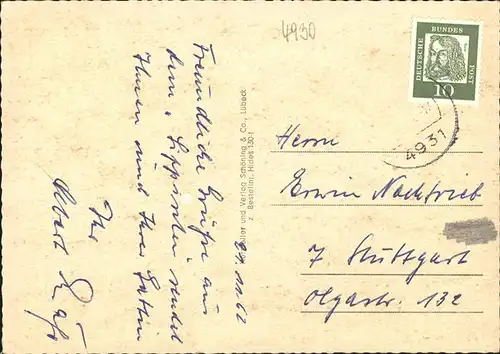 4930
Freundliche Grüße aus
dem
sendet
Ihnen und Ihrer Gattin
Ihr
Albert
Schöning & Co., Lübeck
z. Bestellnr.
DEUTSCHE BUNDES POST
10
4931
Herrn
Erwin Nachtrieb
7 Stuttgart
Olgastr. 132